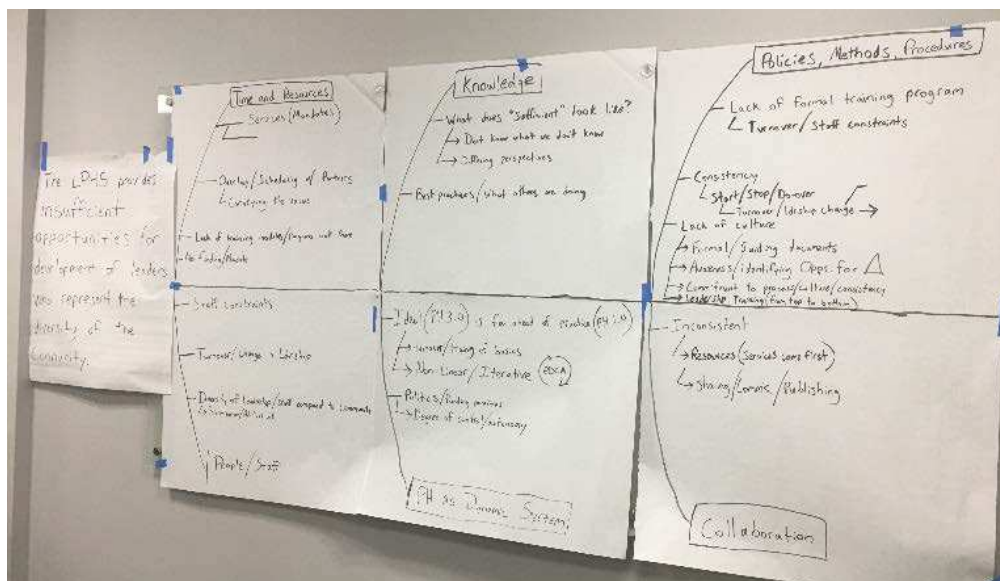 The LPHS provides
insufficient
opportunities for
development of leaders
who represent the
diversity of the
community.
Time and Resources
Services (Mandates)
Overlap/Scheduling of Partners
Conveying the value
Lack of training modules/programs out there
No Funding/Mandate
Staff constraints
Turnover/Change in Ldrship
Diversity of leadership/staff compared to community
People/Staff
Knowledge
What does "sufficient" look like?
→ Don't know what we don't know
→ Differing perspectives
Best practices/what others are doing
Ideal (PH 3.0) is far ahead of practice
→ turnover/training of basics
→ Non-Linear/Iterative
Politics/
→ Degree of control/autonomy
PH as Dynamic System
Policies, Methods, Procedures
Lack of formal training program
Turnover/Staff constraints
Consistency
Start/Stop/Do-over
Turnover/Ldrship change →
Lack of culture
→ Formal/Guiding documents
→ Awareness/identifying Opps for Δ
→ Commitment to process/culture/consistency
→ Leadership Training (from top to bottom)
Inconsistent
→ Resources (Services come first)
→ Sharing/Comms/Publishing
Collaboration